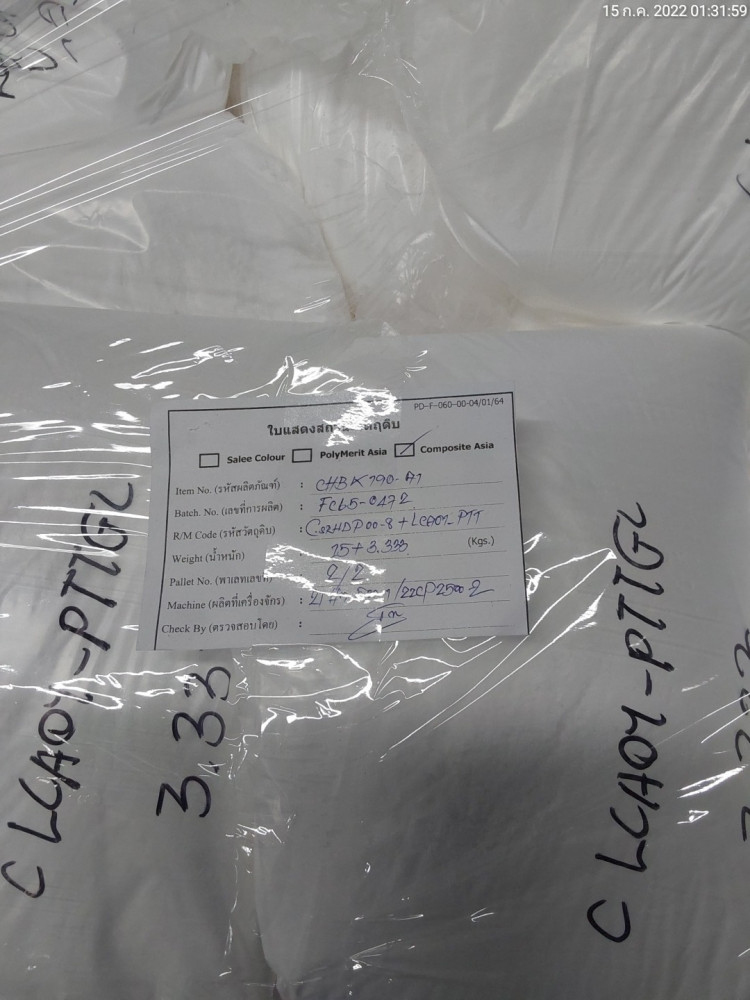 15 ก.ค. 2022 01:31:59
PD-F-060-00-04/01/64
ใบแสดงสถานะวัตถุดิบ
Salee Colour PolyMerit Asia Composite Asia
Item No. (รหัสผลิตภัณฑ์) : CHBK790-A1
Batch. No. (เลขที่การผลิต) : FC65-0472
R/M Code (รหัสวัตถุดิบ) : + LCA01-PTT
Weight (น้ำหนัก) : 15+3.333 (Kgs.)
Pallet No. (พาเลทเลขที่) : 2/2
Machine (ผลิตที่เครื่องจักร) :
Check By (ตรวจสอบโดย) :
C LCA01-PTTGC
3.33
C LCA01-PTTGC